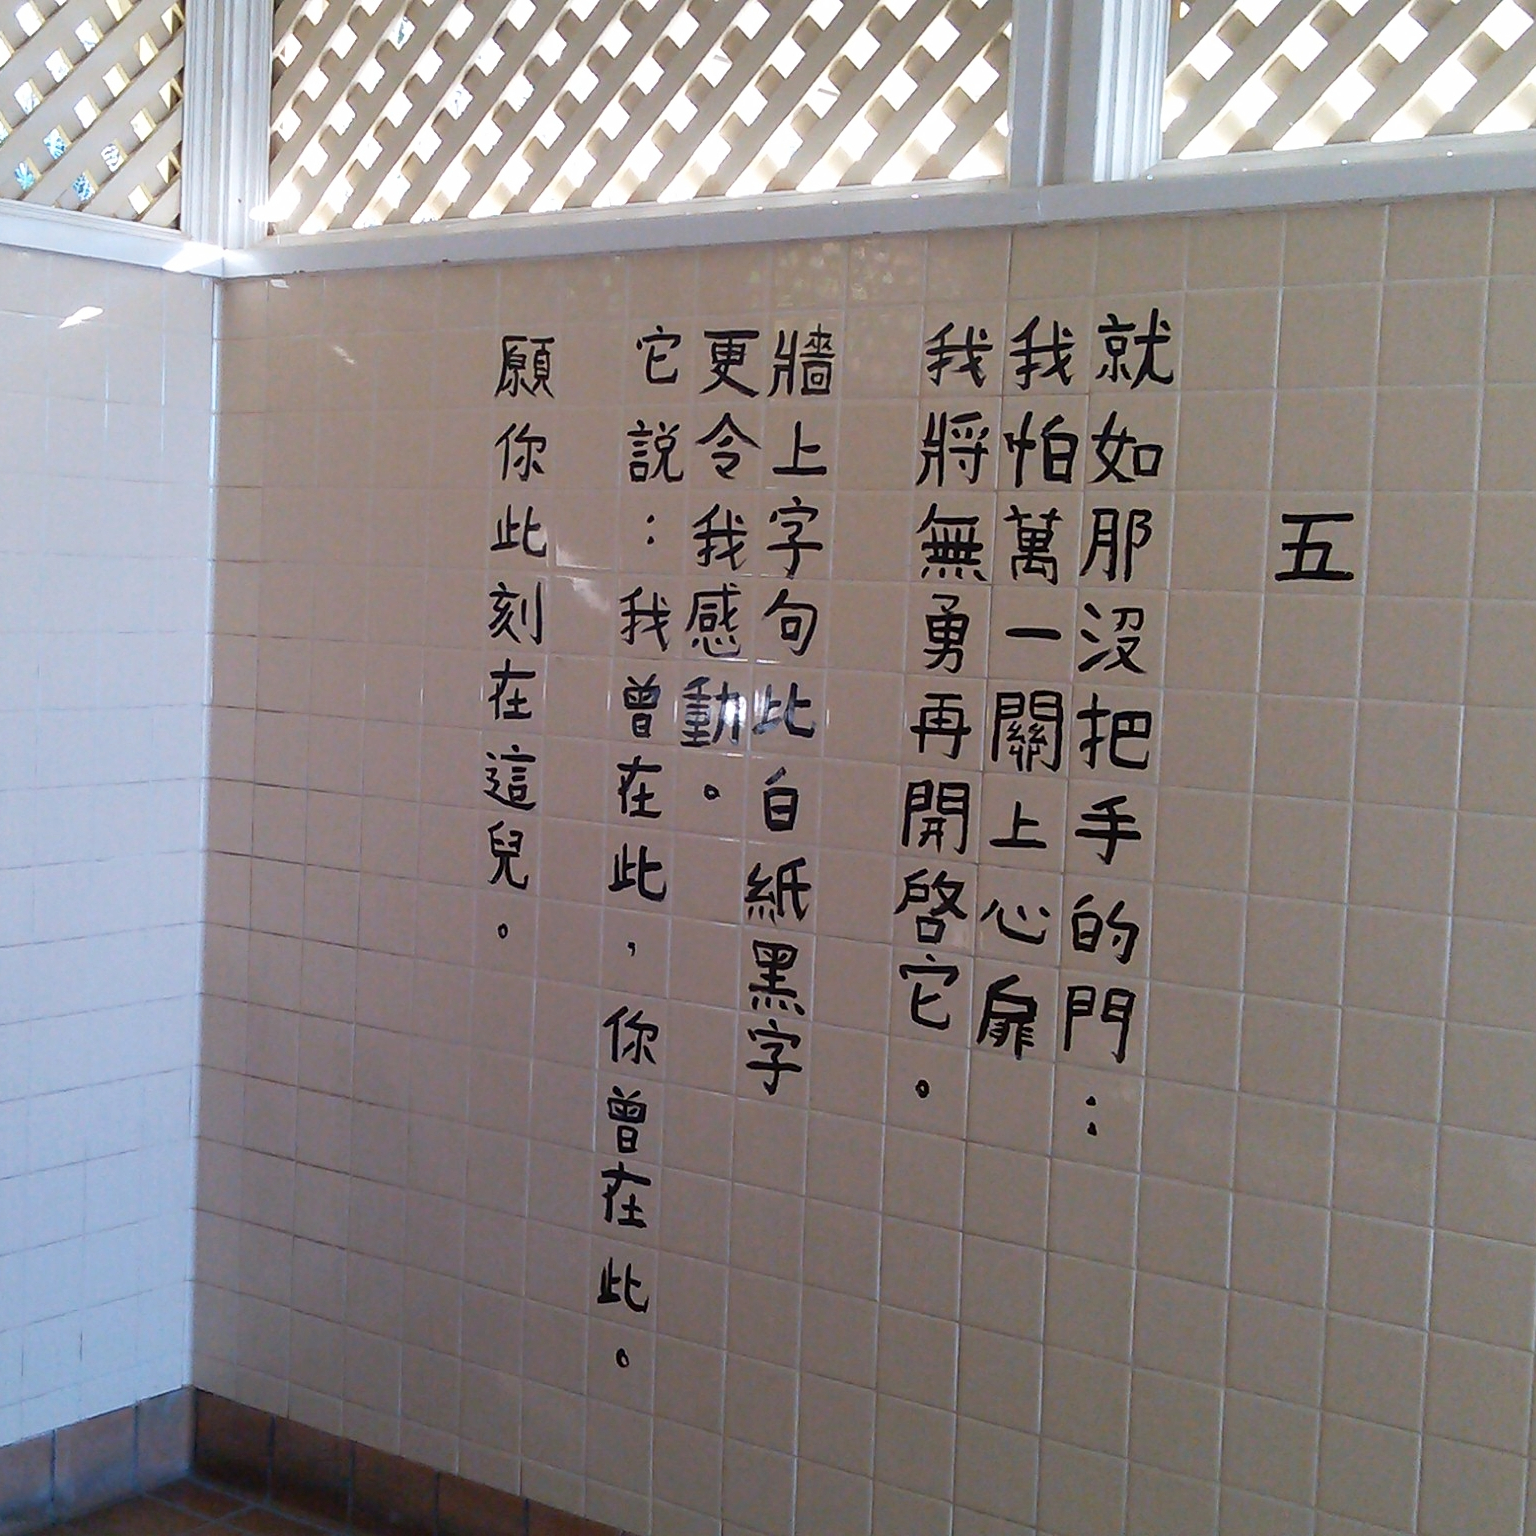 五
就如那沒把手的門：
我怕萬一關上心扉
我將無勇再開啓它。
牆上字句此白紙黑字
更令我感動。
它説：我曾在此，你曾在此。
願你此刻在這兒。